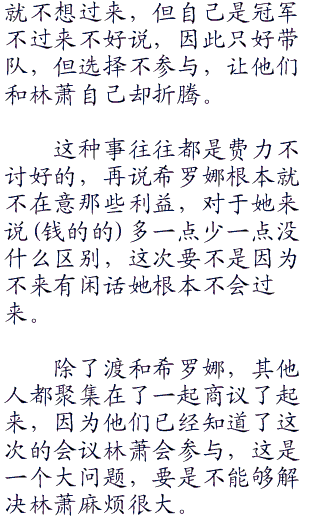 就不想过来，但自己是冠军
不过来不好说，因此只好带
队，但选择不参与，让他们
和林萧自己却折腾。
这种事往往都是费力不
讨好的，再说希罗娜根本就
不在意那些利益，对于她来
说(钱的的)多一点少一点没
什么区别，这次要不是因为
不来有闲话她根本不会过
来。
除了渡和希罗娜，其他
人都聚集在了一起商议了起
来，因为他们已经知道了这
次的会议林萧会参与，这是
一个大问题，要是不能够解
决林萧麻烦很大。